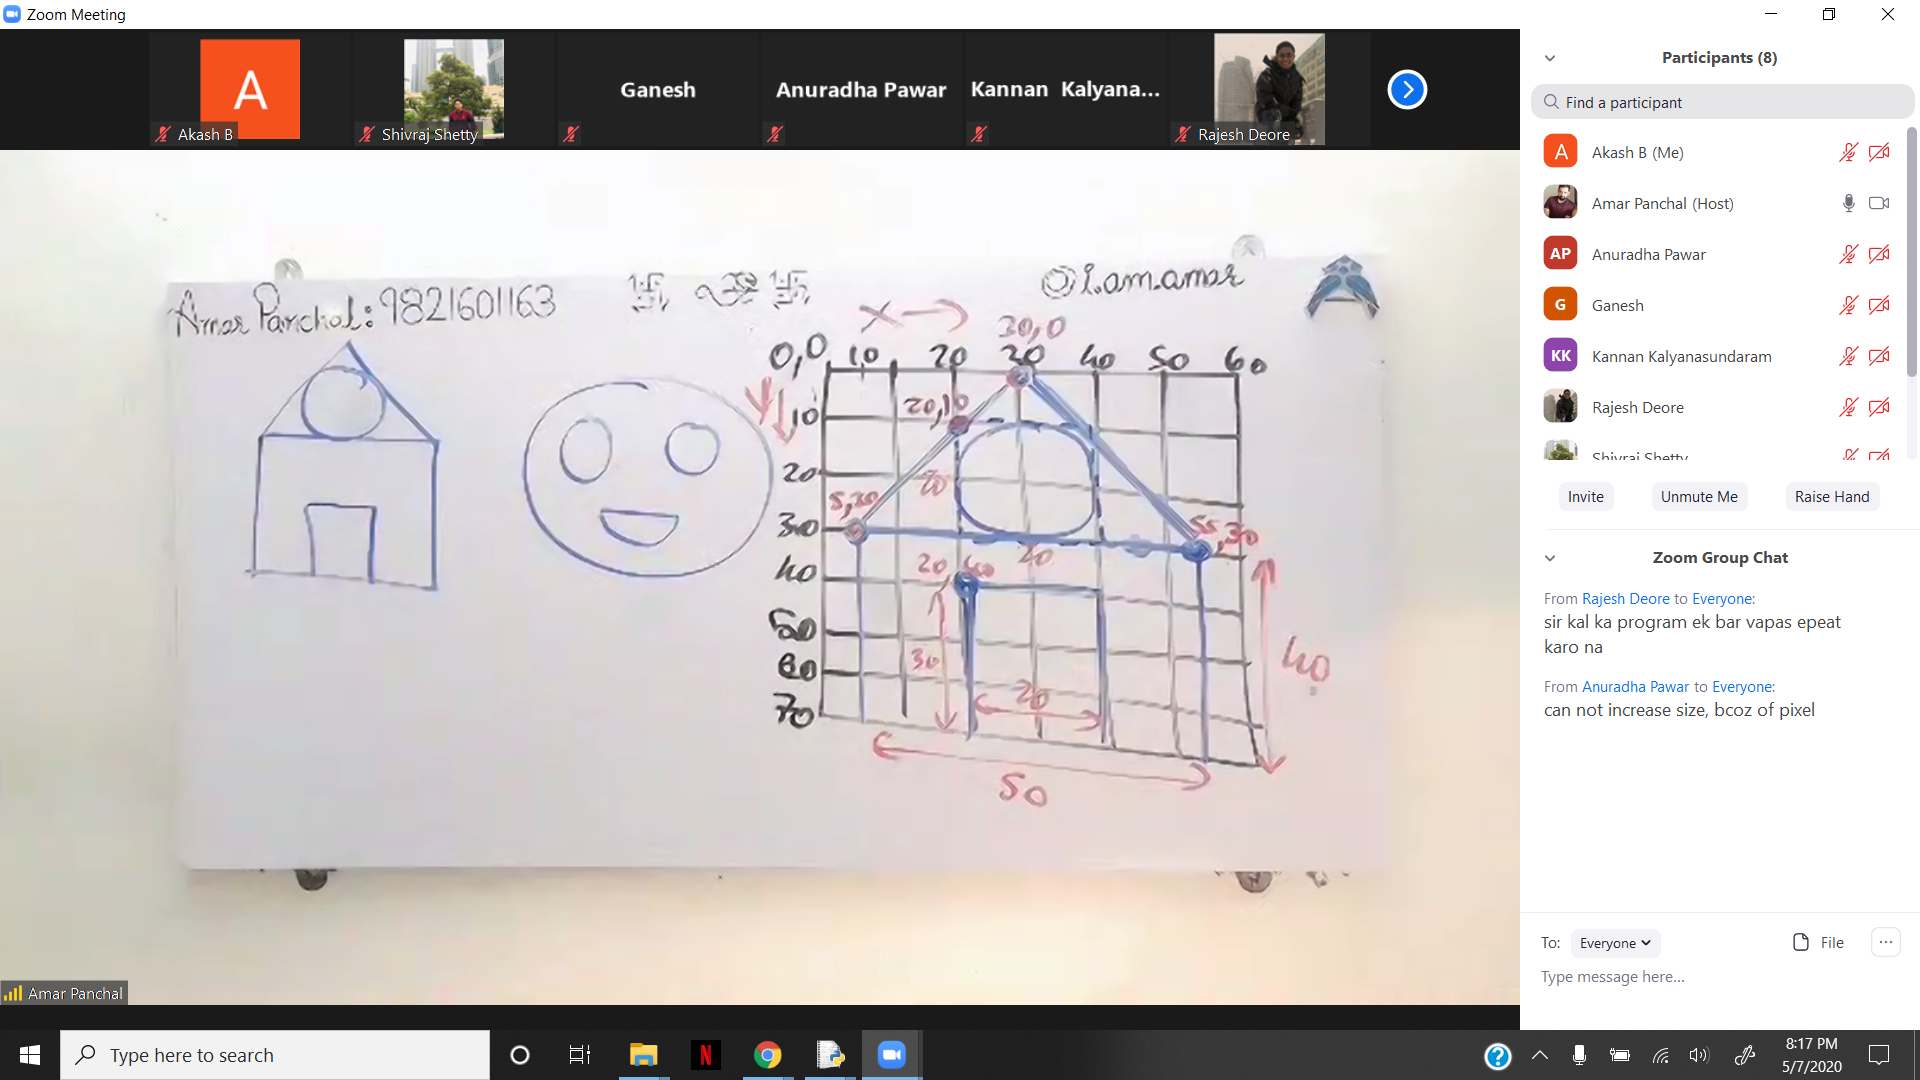 Zoom Meeting
A
Akash B
Shivraj Shetty
Ganesh
Anuradha Pawar
Kannan Kalyana...
Rajesh Deore
Amar Panchal: 9821601163
I.am.amar
X
30,0
0,0 10 20 30 40 50 60
Y
10
20,10
20
20
5,30
30
55,30
20
40
20 40
50
30
60
20
40
70
50
Amar Panchal
Participants (8)
Find a participant
A Akash B (Me)
Amar Panchal (Host)
AP Anuradha Pawar
G Ganesh
KK Kannan Kalyanasundaram
Rajesh Deore
Shivraj Shetty
Invite Unmute Me Raise Hand
Zoom Group Chat
From Rajesh Deore to Everyone:
sir kal ka program ek bar vapas epeat
karo na
From Anuradha Pawar to Everyone:
can not increase size, bcoz of pixel
To: Everyone File
Type message here...
Type here to search
8:17 PM
5/7/2020